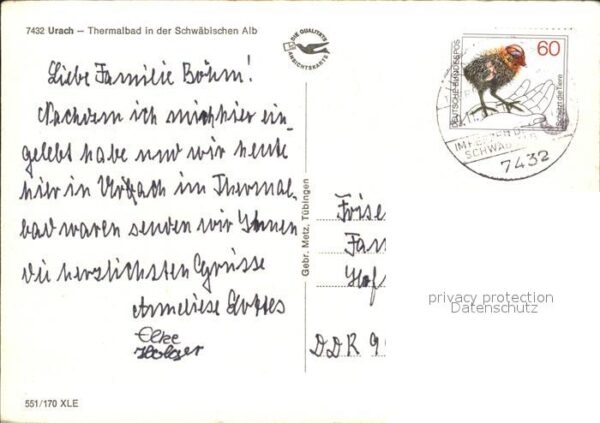 7432 Urach – Thermalbad in der Schwäbischen Alb
DIE QUALITÄTS
ANSICHTSKARTE
Liebe Familie Böhm!
Nachdem ich mich hier ein-
gelebt habe und wir heute
hier in Urach im Thermal-
bad waren senden wir Ihnen
die herzlichsten Grüsse
Anneliese
Elke
Holger
551/170 XLE
Gebr. Metz, Tübingen
DEUTSCHE BUNDESPOST
60
Schützt die Tiere
7432
Frise
Fam
Hof
DDR 9
privacy protection
Datenschutz